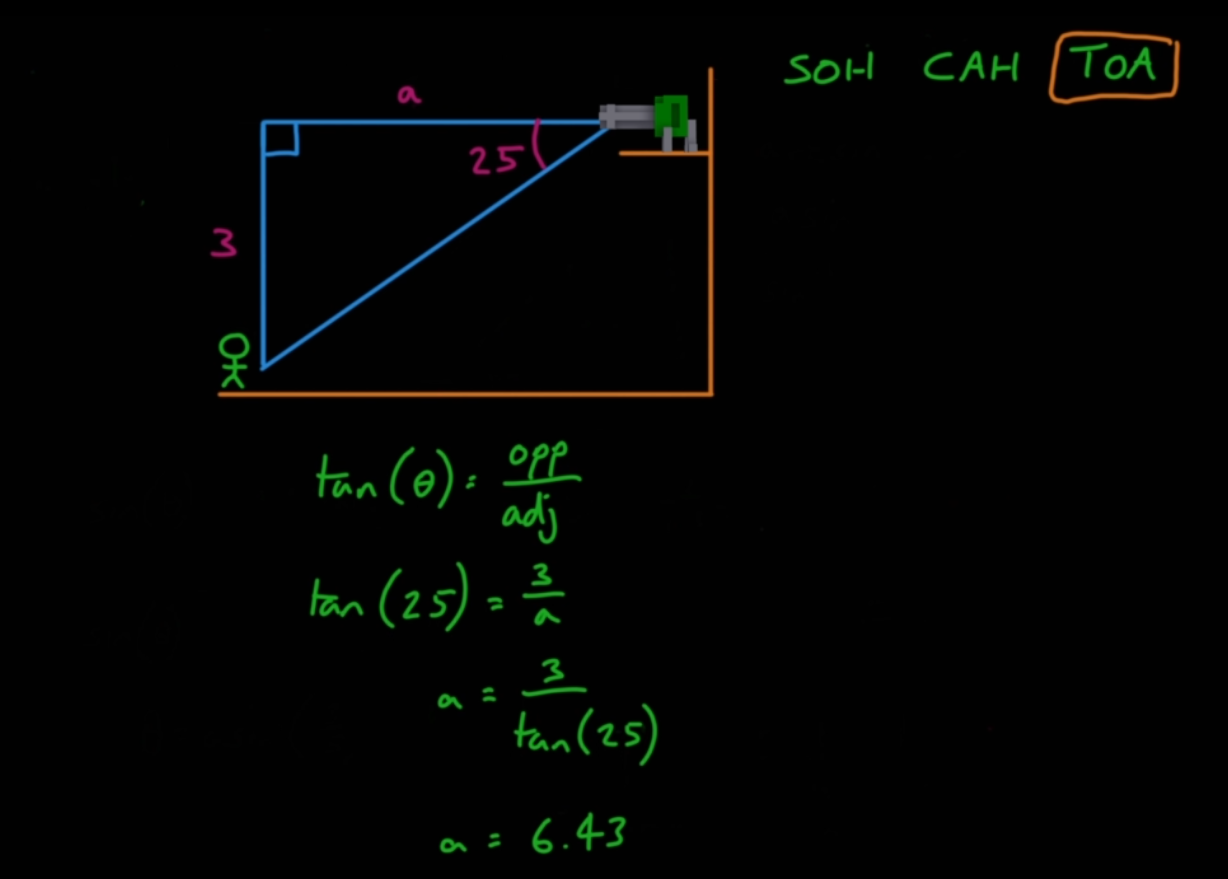 SOH CAH TOA
a
25
3
tan(θ) = opp/adj
tan(25) = 3/a
a = 3/tan(25)
a = 6.43